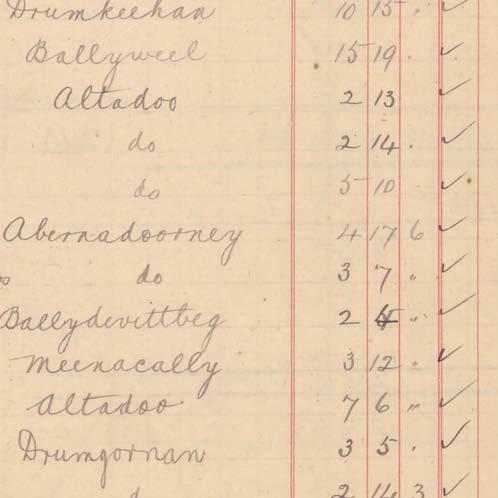 Drumkeehan 10 15 "
Ballyweel 15 19 . ✓
Altadoo 2 13 ✓
do 2 14 . ✓
do 5 10 ✓
Abernadoorney 4 17 6 ✓
do 3 7 " ✓
Ballydevittbeg 2 " ✓
Meenacally 3 12 . ✓
Altadoo 7 6 " ✓
Drumgornan 3 5 . ✓
2 14 3